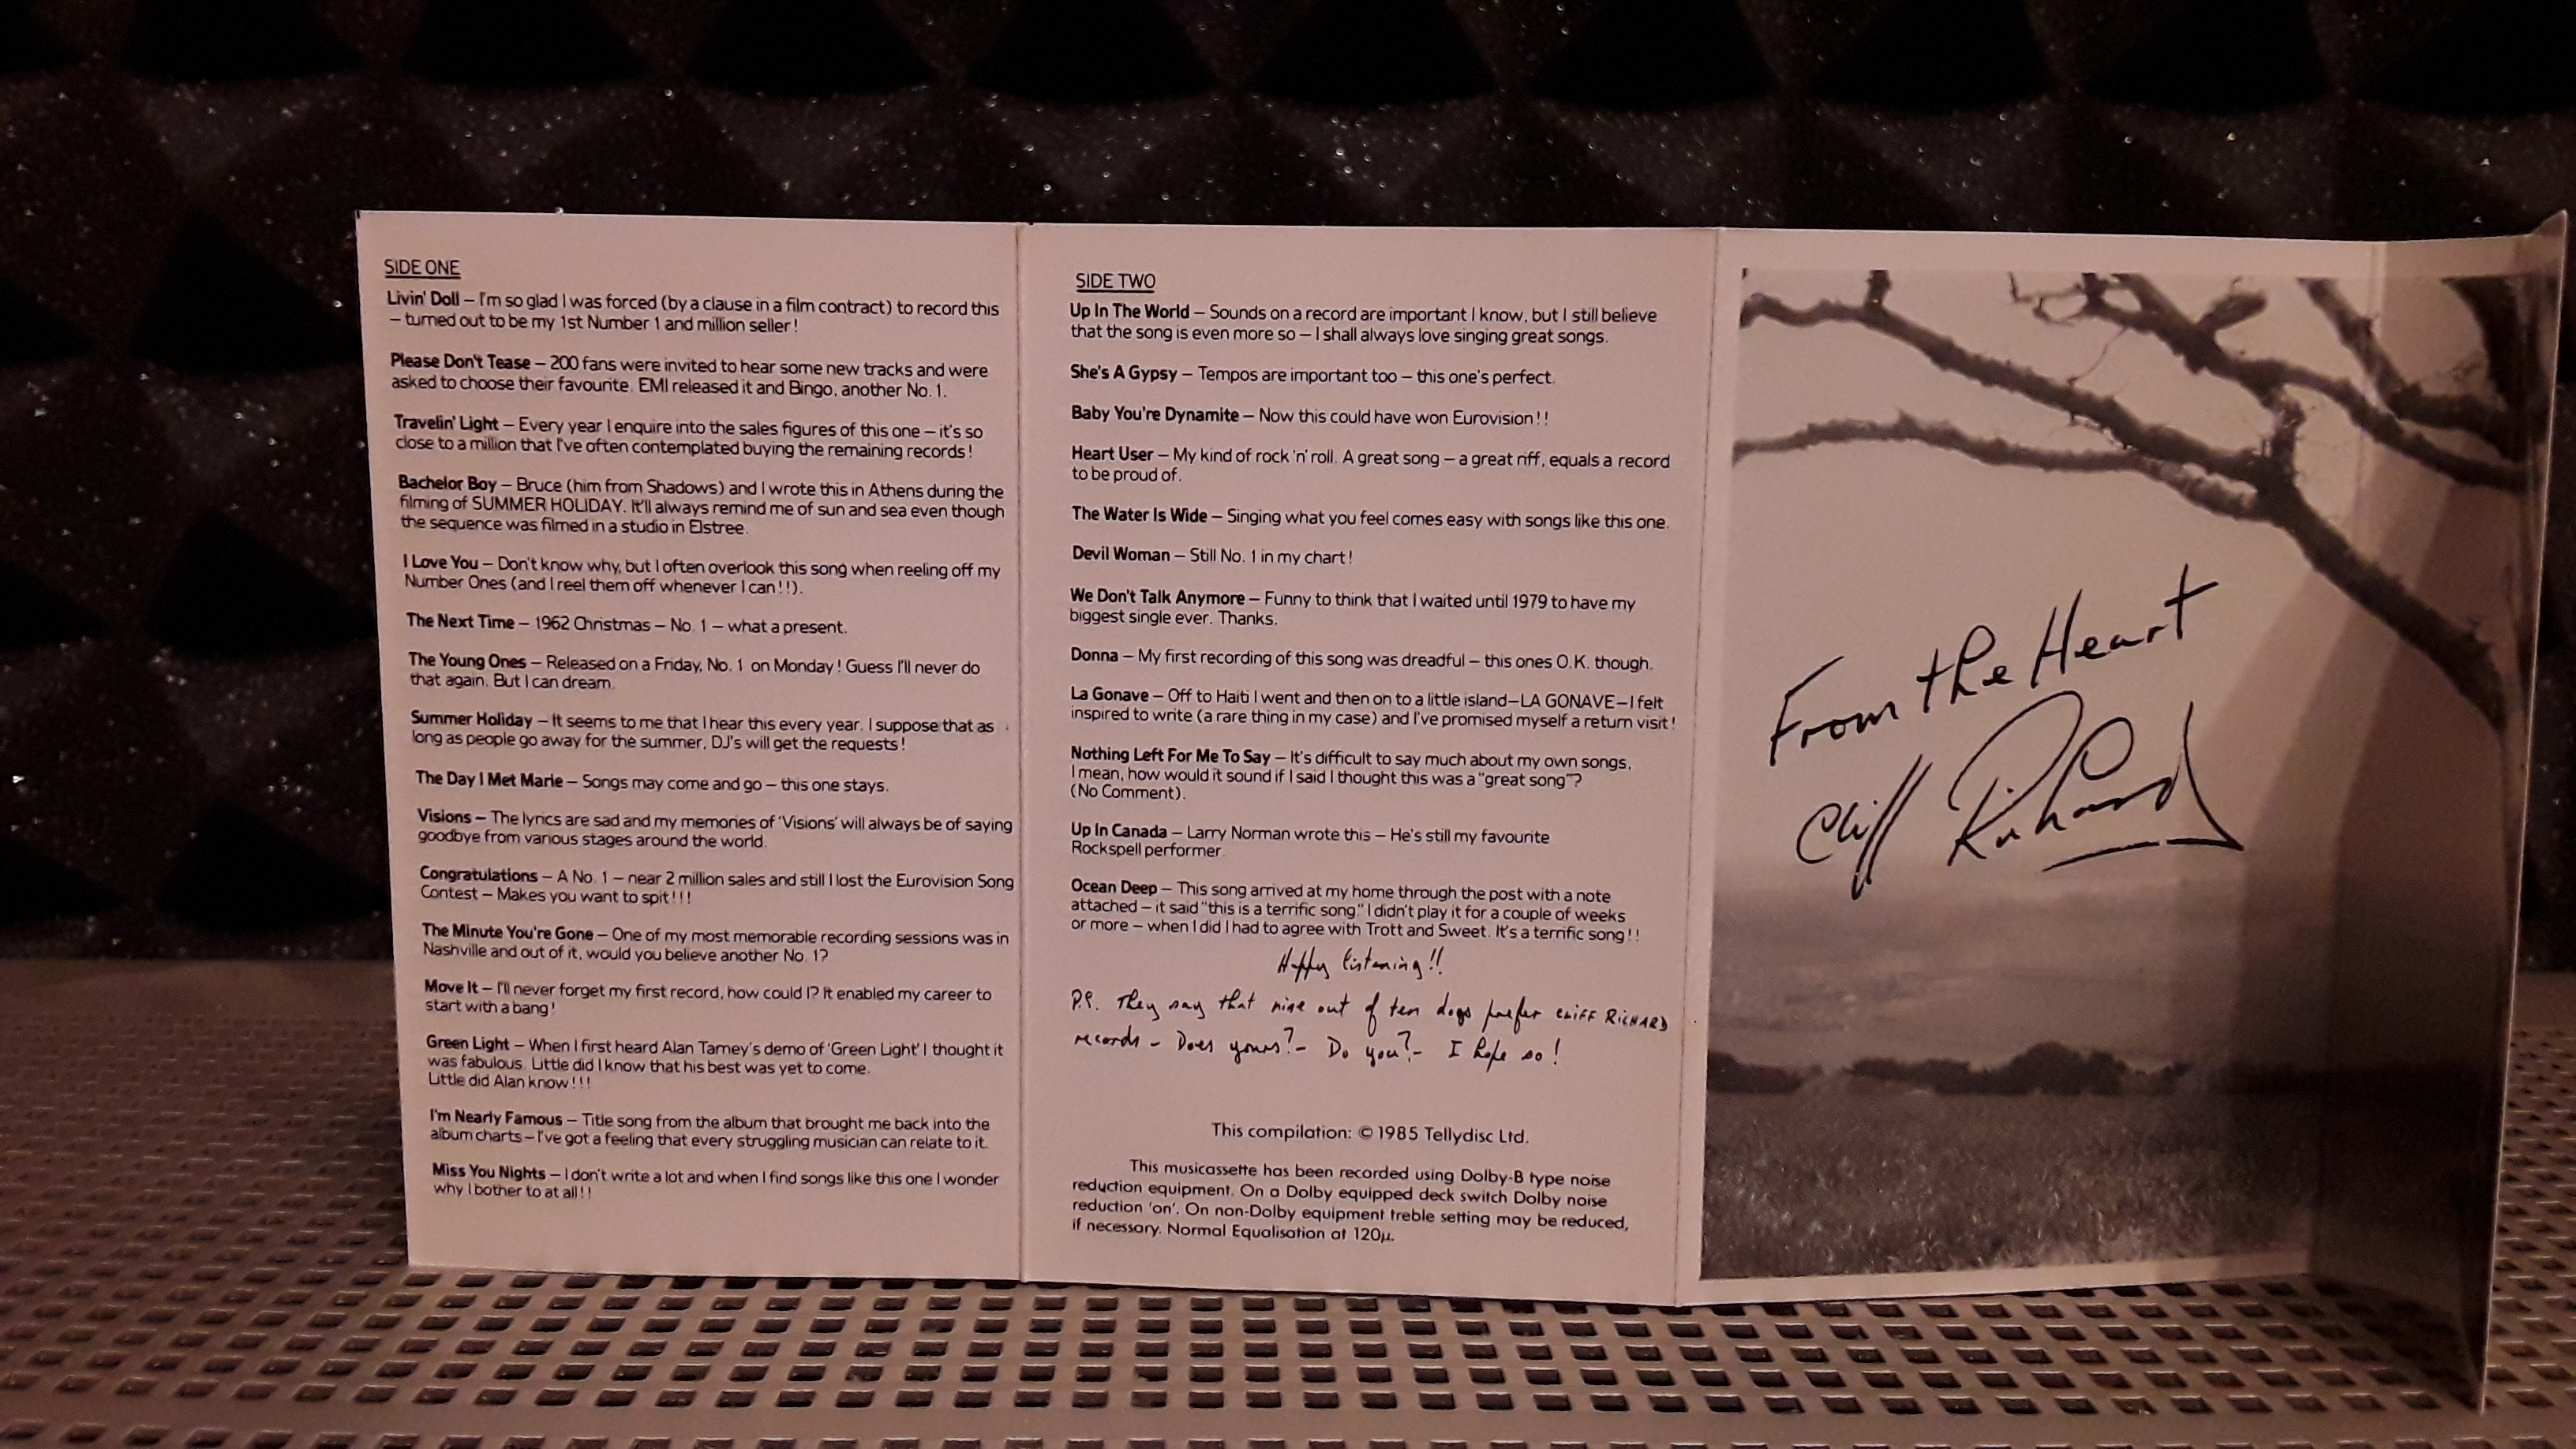 SIDE ONE
Livin' Doll – I'm so glad I was forced (by a clause in a film contract) to record this
– turned out to be my 1st Number 1 and million seller!
Please Don't Tease – 200 fans were invited to hear some new tracks and were
asked to choose their favourite. EMI released it and Bingo, another No. 1.
Travelin' Light – Every year I enquire into the sales figures of this one – it's so
close to a million that I've often contemplated buying the remaining records!
Bachelor Boy – Bruce (him from Shadows) and I wrote this in Athens during the
filming of SUMMER HOLIDAY. It'll always remind me of sun and sea even though
the sequence was filmed in a studio in Elstree.
I Love You – Don't know why, but I often overlook this song when reeling off my
Number Ones (and I reel them off whenever I can!!).
The Next Time – 1962 Christmas – No. 1 – what a present.
The Young Ones – Released on a Friday, No. 1 on Monday! Guess I'll never do
that again. But I can dream.
Summer Holiday – It seems to me that I hear this every year. I suppose that as
long as people go away for the summer, DJ's will get the requests!
The Day I Met Marie – Songs may come and go – this one stays.
Visions – The lyrics are sad and my memories of 'Visions' will always be of saying
goodbye from various stages around the world.
Congratulations – A No. 1 – near 2 million sales and still I lost the Eurovision Song
Contest – Makes you want to spit!!!
The Minute You're Gone – One of my most memorable recording sessions was in
Nashville and out of it, would you believe another No. 1?
Move It – I'll never forget my first record, how could I? It enabled my career to
start with a bang!
Green Light – When I first heard Alan Tarney's demo of 'Green Light' I thought it
was fabulous. Little did I know that his best was yet to come.
Little did Alan know!!!
I'm Nearly Famous – Title song from the album that brought me back into the
album charts – I've got a feeling that every struggling musician can relate to it.
Miss You Nights – I don't write a lot and when I find songs like this one I wonder
why I bother to at all!!
SIDE TWO
Up In The World – Sounds on a record are important I know, but I still believe
that the song is even more so – I shall always love singing great songs.
She's A Gypsy – Tempos are important too – this one's perfect.
Baby You're Dynamite – Now this could have won Eurovision!!
Heart User – My kind of rock 'n' roll. A great song – a great riff, equals a record
to be proud of.
The Water Is Wide – Singing what you feel comes easy with songs like this one.
Devil Woman – Still No. 1 in my chart!
We Don't Talk Anymore – Funny to think that I waited until 1979 to have my
biggest single ever. Thanks.
Donna – My first recording of this song was dreadful – this ones O.K. though.
La Gonave – Off to Haiti I went and then on to a little island–LA GONAVE–I felt
inspired to write (a rare thing in my case) and I've promised myself a return visit!
Nothing Left For Me To Say – It's difficult to say much about my own songs,
I mean, how would it sound if I said I thought this was a "great song"?
(No Comment).
Up In Canada – Larry Norman wrote this – He's still my favourite
Rockspell performer.
Ocean Deep – This song arrived at my home through the post with a note
attached – it said "this is a terrific song." I didn't play it for a couple of weeks
or more – when I did I had to agree with Trott and Sweet. It's a terrific song!!
Happy listening!!
P.S. They say that nine out of ten dogs prefer CLIFF RICHARD
records – Does yours? – Do you? – I hope so!
This compilation: © 1985 Tellydisc Ltd.
This musicassette has been recorded using Dolby-B type noise
reduction equipment. On a Dolby equipped deck switch Dolby noise
reduction 'on'. On non-Dolby equipment treble setting may be reduced,
if necessary. Normal Equalisation at 120μ.
From the Heart
Cliff Richard